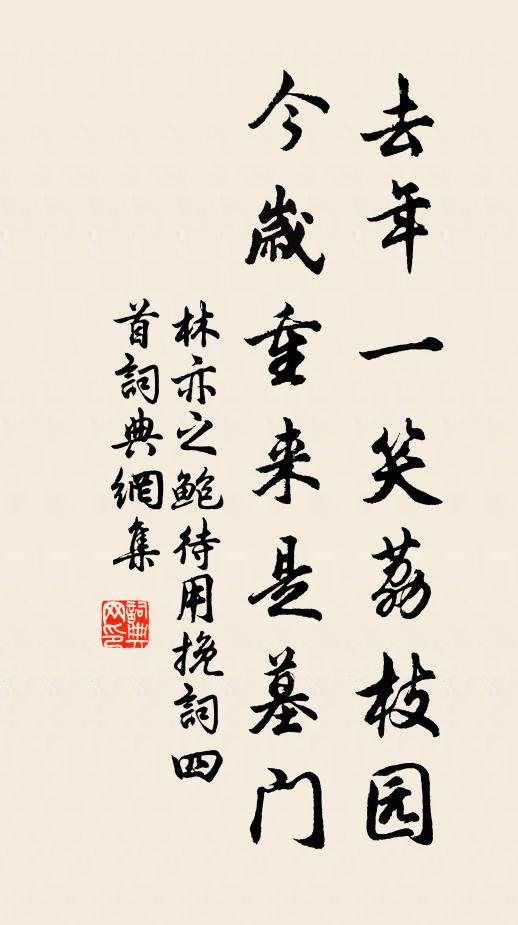 去年一笑荔枝园
今歲重来是墓门
林亦之鲍待用挽詞四
首詞典網集
詞典网印